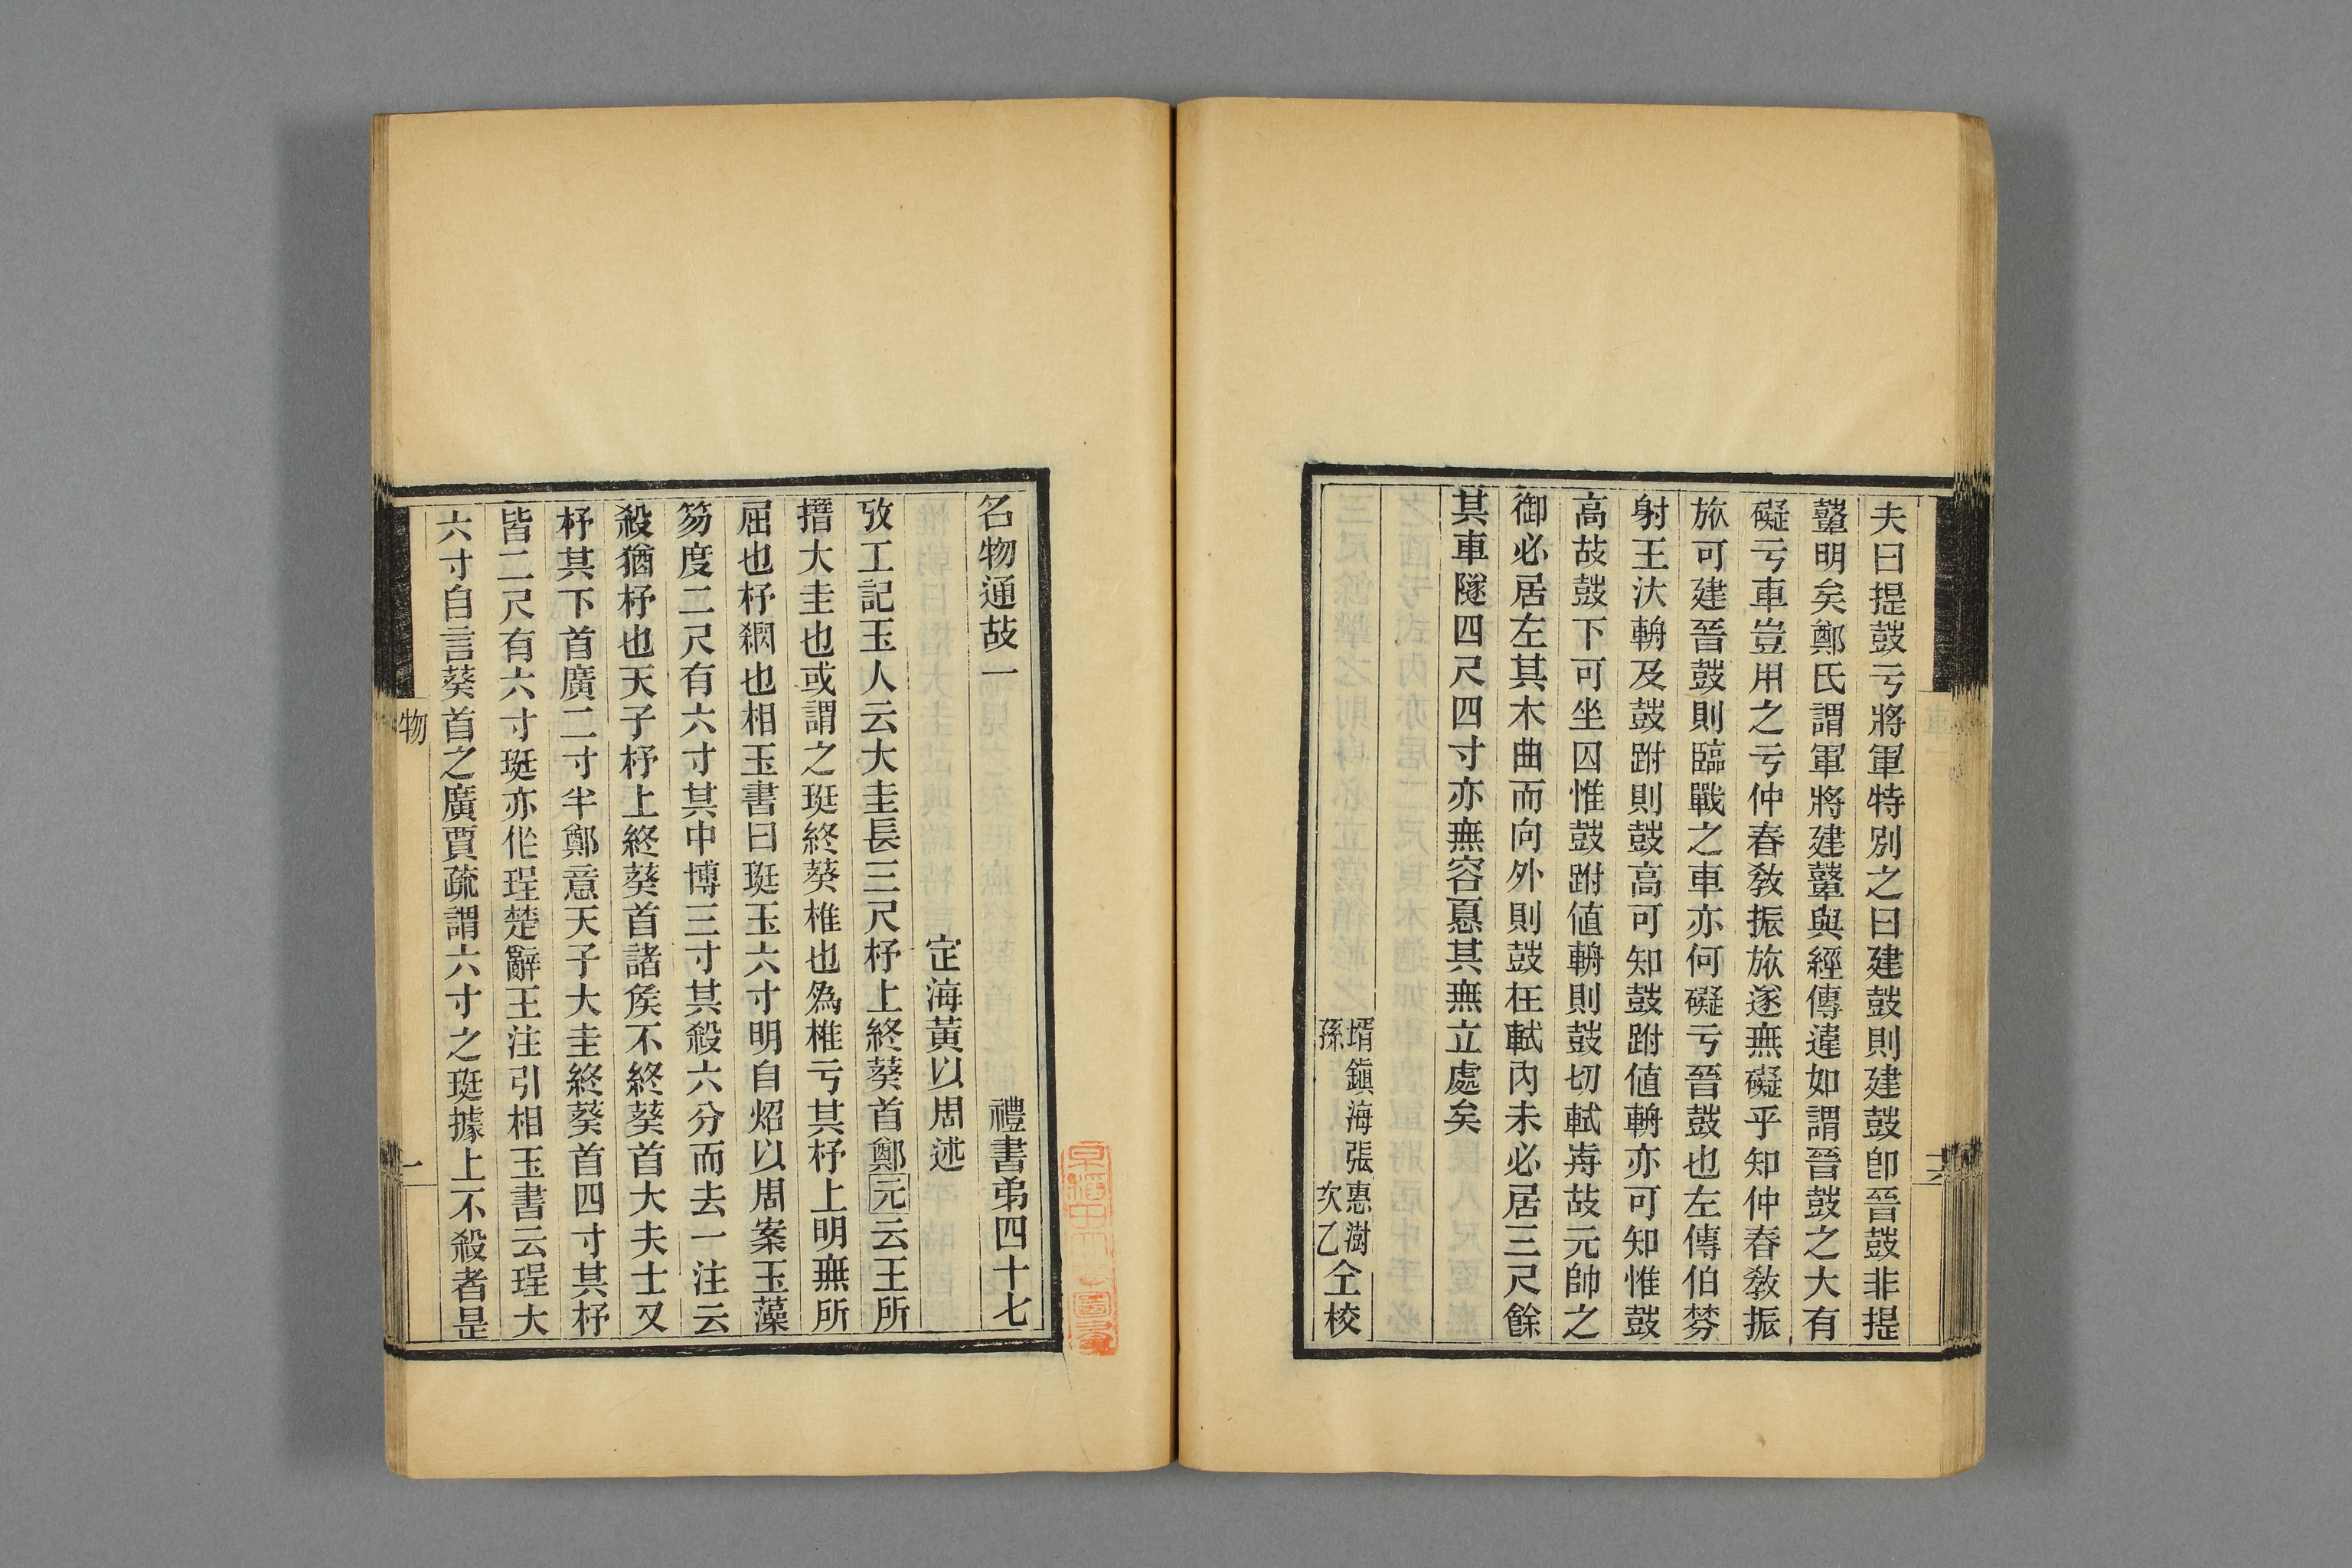 夫曰提鼓亏將軍特別之曰建鼓則建鼓卽晉鼓非提
鼙明矣鄭氏謂軍將建鼙與經傳違如謂晉鼓之大有
礙亏車豈用之亏仲春敎振旅遂無礙乎知仲春敎振
旅可建晉鼓則臨戰之車亦何礙亏晉鼓也左傳伯棼
射王汏輈及鼓跗則鼓高可知鼓跗值輈亦可知惟鼓
高故鼓下可坐囚惟鼓跗值輈則鼓切軾歬故元帥之
御必居左其木曲而向外則鼓在軾內未必居三尺餘
其車隧四尺四寸亦無容慐其無立處矣
壻鎭海張惠澍
孫次乙
仝校
名物通故一
禮書弟四十七
定海黃以周述
攷工記玉人云大圭長三尺杼上終葵首鄭元云王所
搢大圭也或謂之珽終葵椎也爲椎亏其杼上明無所
屈也杼閷也相玉書曰珽玉六寸明自炤以周案玉藻
笏度二尺有六寸其中博三寸其殺六分而去一注云
殺猶杼也天子杼上終葵首諸矦不終葵首大夫士又
杼其下首廣二寸半鄭意天子大圭終葵首四寸其杼
皆二尺有六寸珽亦作珵楚辭王注引相玉書云珵大
六寸自言葵首之廣賈疏謂六寸之珽據上不殺者是
物
一